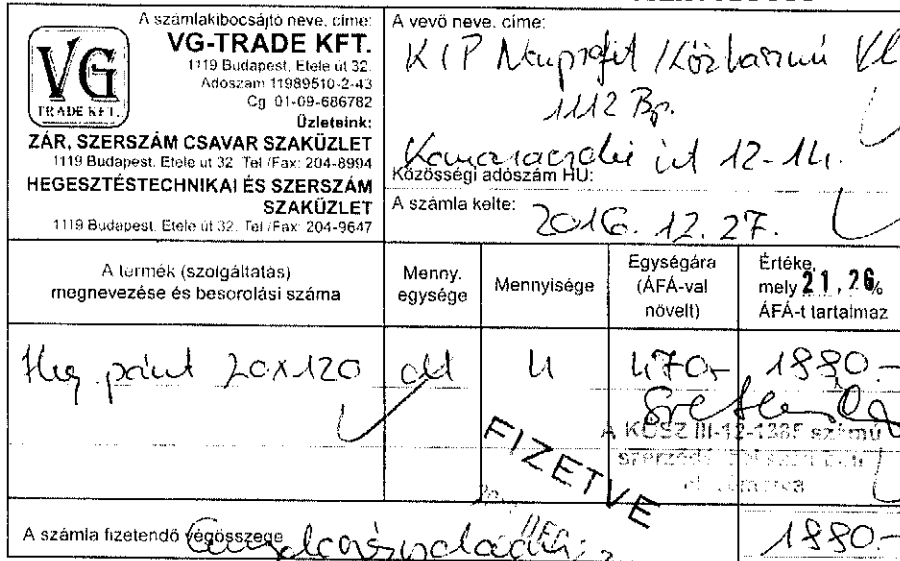 A számlakibocsájtó neve, címe:
VG
TRADE KFT.
VG-TRADE KFT.
1119 Budapest, Etele út 32.
Adószám 11989510-2-43
Cg. 01-09-686782
Üzleteink:
ZÁR, SZERSZÁM CSAVAR SZAKÜZLET
1119 Budapest, Etele út 32. Tel./Fax: 204-8994
HEGESZTÉSTECHNIKAI ÉS SZERSZÁM
SZAKÜZLET
1119 Budapest, Etele út 32. Tel./Fax: 204-9647
A vevő neve, címe:
KIP Nonprofit
1112 Bp.
út 12-14.
Közösségi adószám HU:
A számla kelte: 2016. 12. 27.
A termék (szolgáltatás)
megnevezése és besorolási száma
Menny.
egysége
Mennyisége
Egységára
(ÁFÁ-val
növelt)
Értéke,
mely 21,26%
ÁFÁ-t tartalmaz
Heg pánt 20x120 4 470,- 1880.-
A KÖSZ III-12-1385 számú
FIZETVE
A számla fizetendő végösszege 1880.-